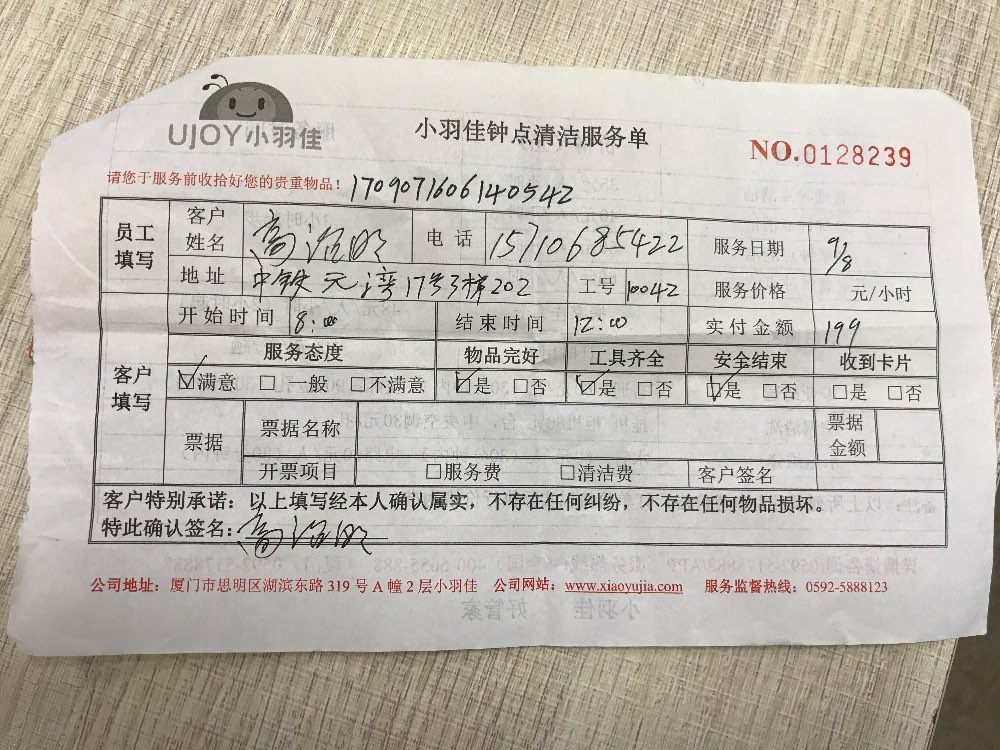 UJOY小羽佳
小羽佳钟点清洁服务单
NO.0128239
请您于服务前收拾好您的贵重物品！ 1709071606140542
员工填写 客户姓名 高 电话 15710685422 服务日期 9/8
地址 中铁元湾17号3梯202 工号 10042 服务价格 元/小时
开始时间 8:00 结束时间 12:00 实付金额 199
客户填写 服务态度 物品完好 工具齐全 安全结束 收到卡片
☑满意 □一般 □不满意 ☑是 □否 ☑是 □否 ☑是 □否 □是 □否
票据 票据名称 票据金额
开票项目 □服务费 □清洁费 客户签名
客户特别承诺：以上填写经本人确认属实，不存在任何纠纷，不存在任何物品损坏。
特此确认签名：高
公司地址：厦门市思明区湖滨东路 319 号 A 幢 2 层小羽佳 公司网站：www.xiaoyujia.com 服务监督热线：0592-5888123